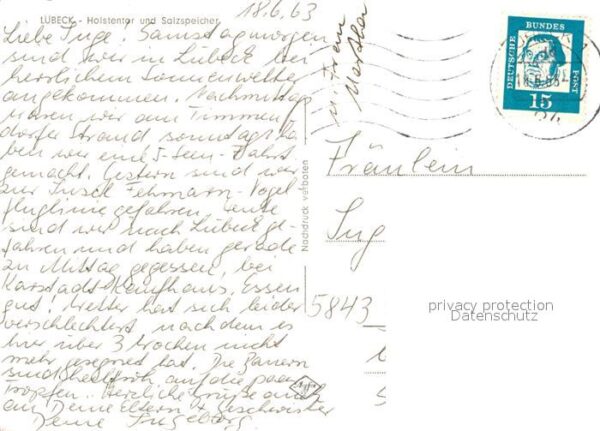 LÜBECK - Holstentor und Salzspeicher
18.6.63
Liebe Inge! Samstagmorgen
sind wir in Lübeck bei
herrlichem Sonnenwetter
angekommen. Nachmittag
waren wir am Timmen
dorfer Strand sonntags ha
ben wir eine 5-Seen-Fahrt
gemacht. Gestern sind wir
zur Insel Fehmarn-Vogel
fluglinie gefahren heute
sind wir nach Lübeck ge-
fahren und haben gerade
zu Mittag gegessen, bei
Karstadt-Kaufhaus. Essen
gut! Wetter hat sich leider
verschlechtert nachdem es
hier über 3 Wochen nicht
mehr geregnet hat. Die Bauern
sind heilfroh, auf die paar
Tropfen. Herzliche Grüße auch
an Deine Eltern + Geschwister
Deine Ingeborg
Frau
Nachdruck verboten
DEUTSCHE
BUNDES
POST
15
Fräulein
Ing
5843
privacy protection
Datenschutz